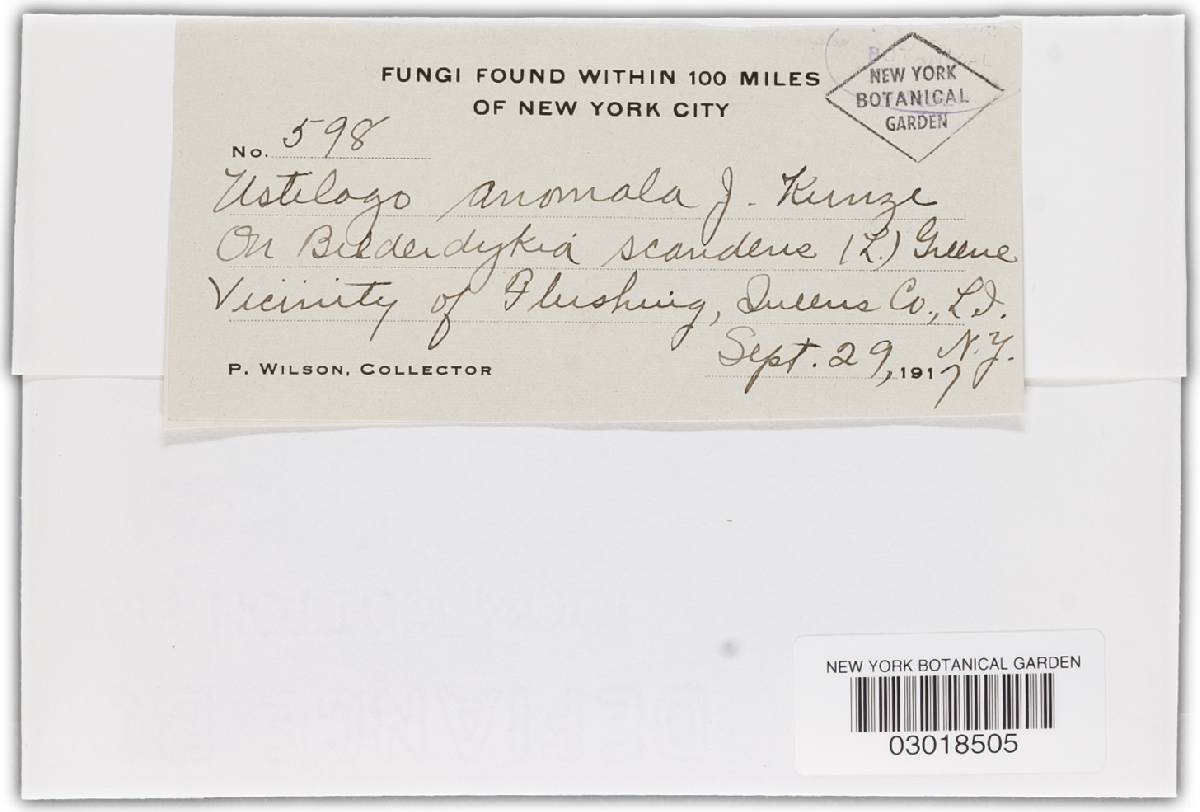 FUNGI FOUND WITHIN 100 MILES
OF NEW YORK CITY
NEW YORK
BOTANICAL
GARDEN
No. 598
Ustilago anomala J. Kunze
On Bilderdykia scandens (L.) Greene
Vicinity of Flushing, Queens Co., L.I.
N.Y.
Sept. 29, 1917
P. WILSON, COLLECTOR
NEW YORK BOTANICAL GARDEN
03018505